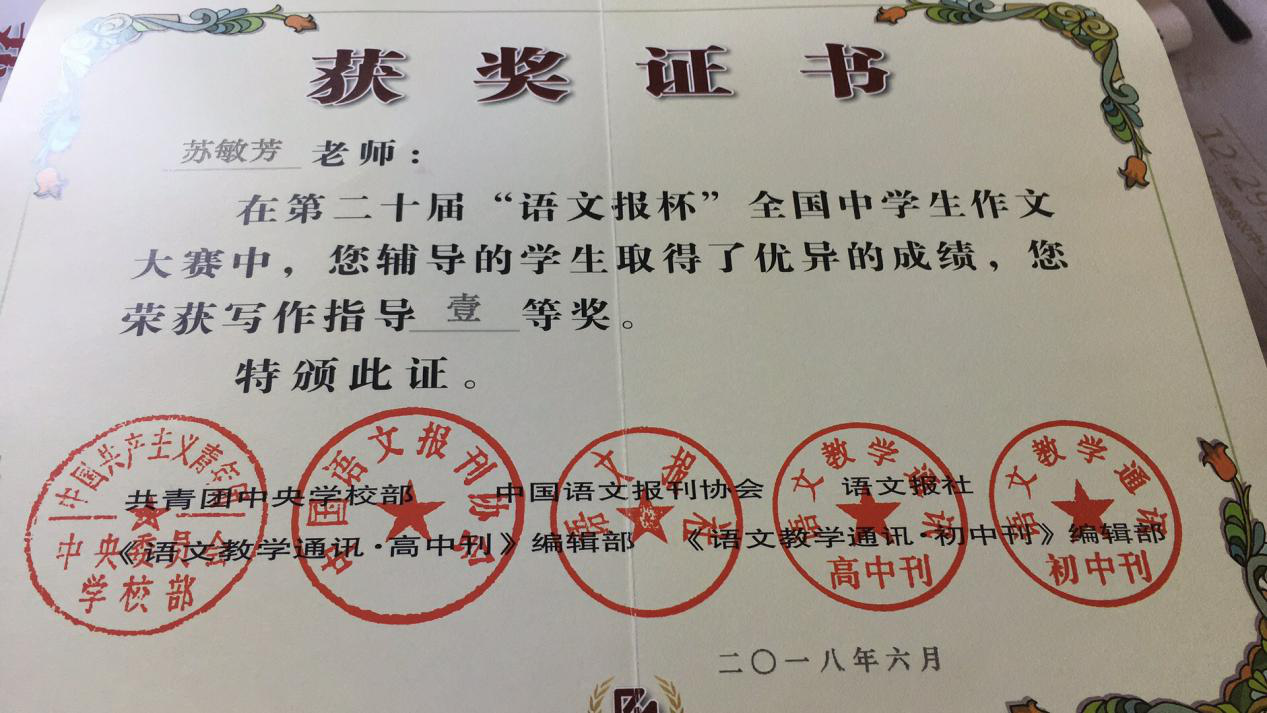 获奖证书
苏敏芳 老师：
在第二十届“语文报杯”全国中学生作文
大赛中，您辅导的学生取得了优异的成绩，您
荣获写作指导 壹 等奖。
特颁此证。
共青团中央学校部 中国语文报刊协会 语文报社
《语文教学通讯·高中刊》编辑部 《语文教学通讯·初中刊》编辑部
中国共产主义青年团
中央委员会
学校部
中国语文报刊协会
语文报社
语文教学通讯
高中刊
语文教学通讯
初中刊
二〇一八年六月
12:29